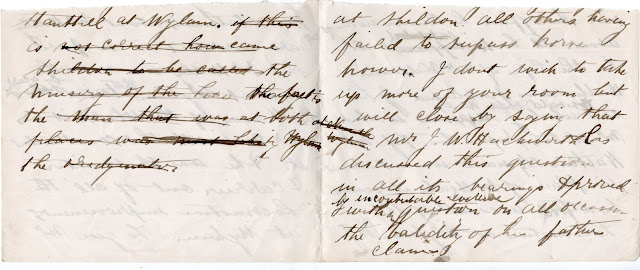 Hanthill at Wylam. if this
is not correct how came
Shildon to be called the
nursery of the Loco the fact is
the man that was at both
places was most likely
the
at Shildon all others having
failed to surpass horse
power. I dont wish to take
up more of your room but
will close by saying that
Mr J. W. Hackworth has
discussed this question
in all its bearings & proved
by incontrovertible evidence
question on all occasion
the validity of his father
claims